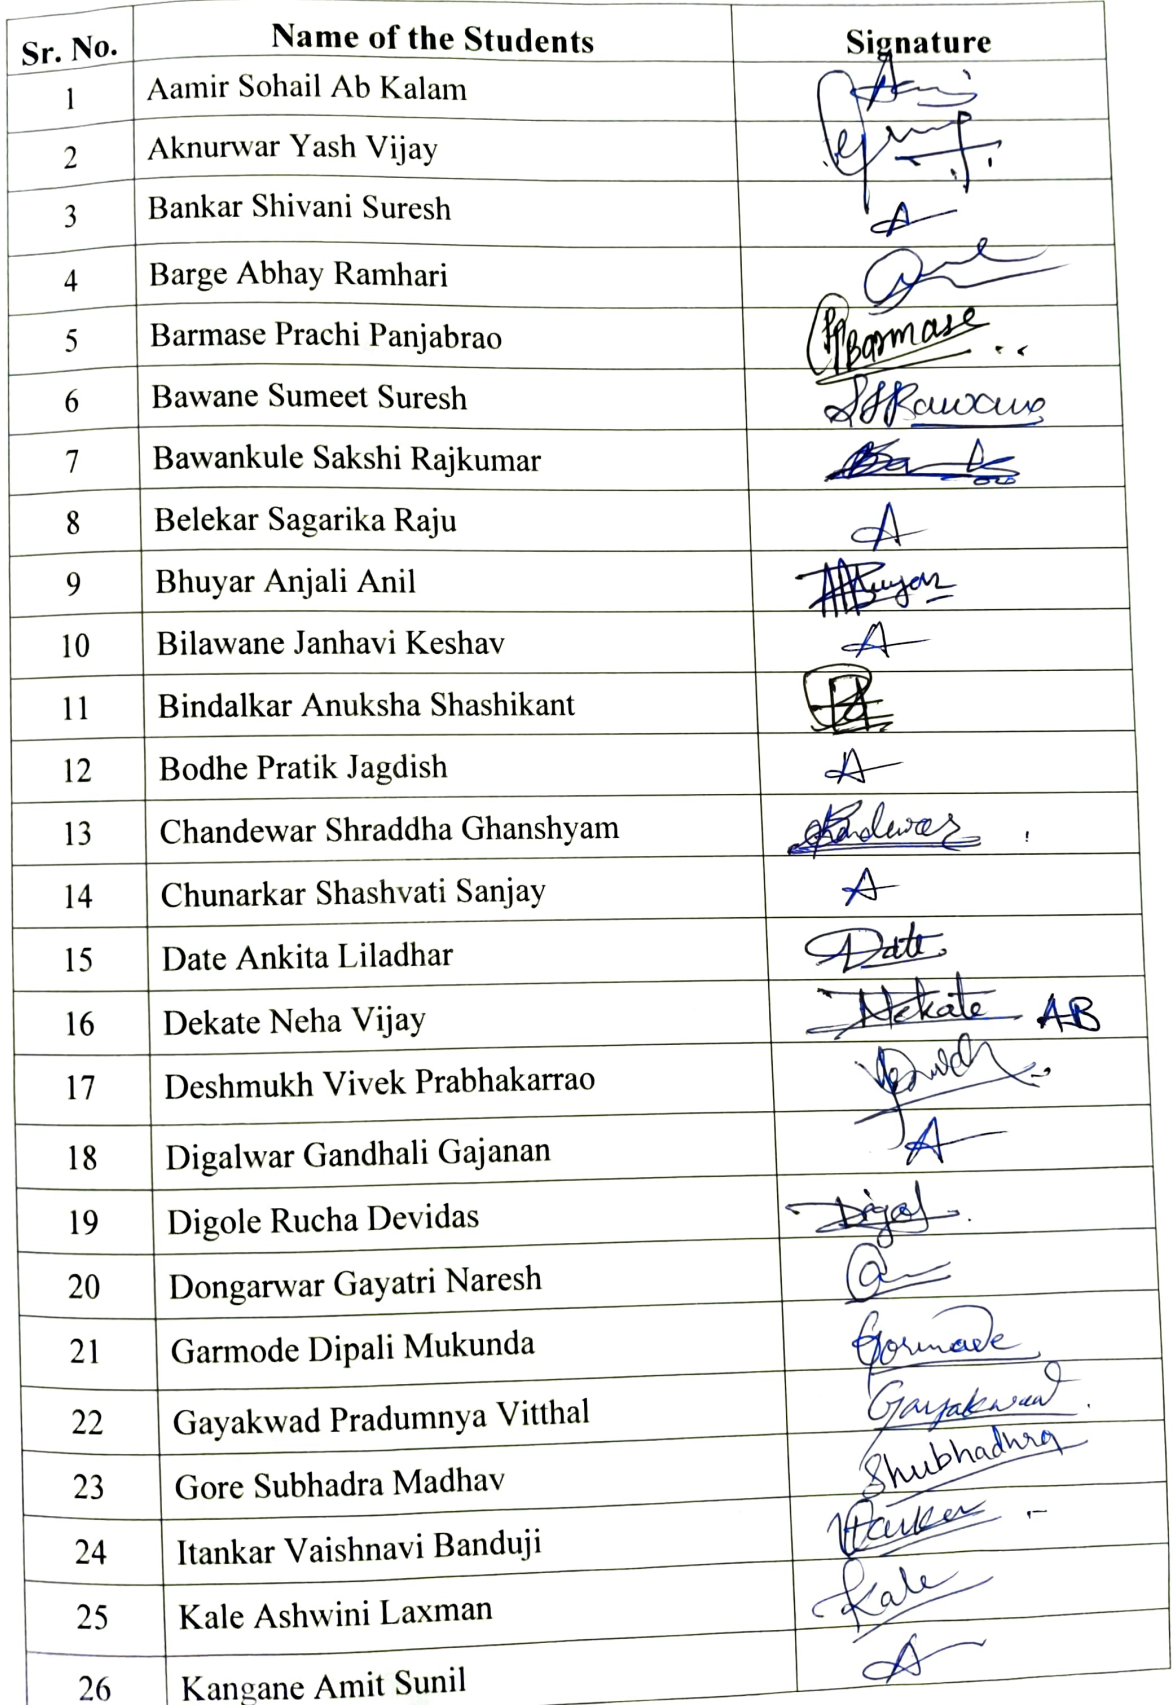 Sr. No. Name of the Students Signature
1 Aamir Sohail Ab Kalam
2 Aknurwar Yash Vijay
3 Bankar Shivani Suresh A
4 Barge Abhay Ramhari
5 Barmase Prachi Panjabrao PPBarmase
6 Bawane Sumeet Suresh SSBawane
7 Bawankule Sakshi Rajkumar
8 Belekar Sagarika Raju A
9 Bhuyar Anjali Anil
10 Bilawane Janhavi Keshav A
11 Bindalkar Anuksha Shashikant
12 Bodhe Pratik Jagdish A
13 Chandewar Shraddha Ghanshyam
14 Chunarkar Shashvati Sanjay A
15 Date Ankita Liladhar Date
16 Dekate Neha Vijay Dekate AB
17 Deshmukh Vivek Prabhakarrao
18 Digalwar Gandhali Gajanan A
19 Digole Rucha Devidas
20 Dongarwar Gayatri Naresh
21 Garmode Dipali Mukunda Garmode
22 Gayakwad Pradumnya Vitthal Gayakwad
23 Gore Subhadra Madhav Shubhadhra
24 Itankar Vaishnavi Banduji
25 Kale Ashwini Laxman Kale
26 Kangane Amit Sunil A